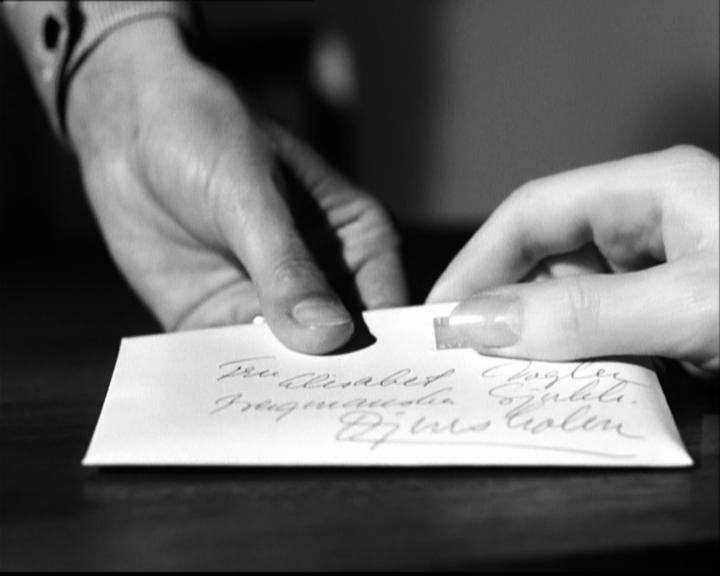 Fru Elisabet Vogler
Bergmanska Sjukh.
Djursholm